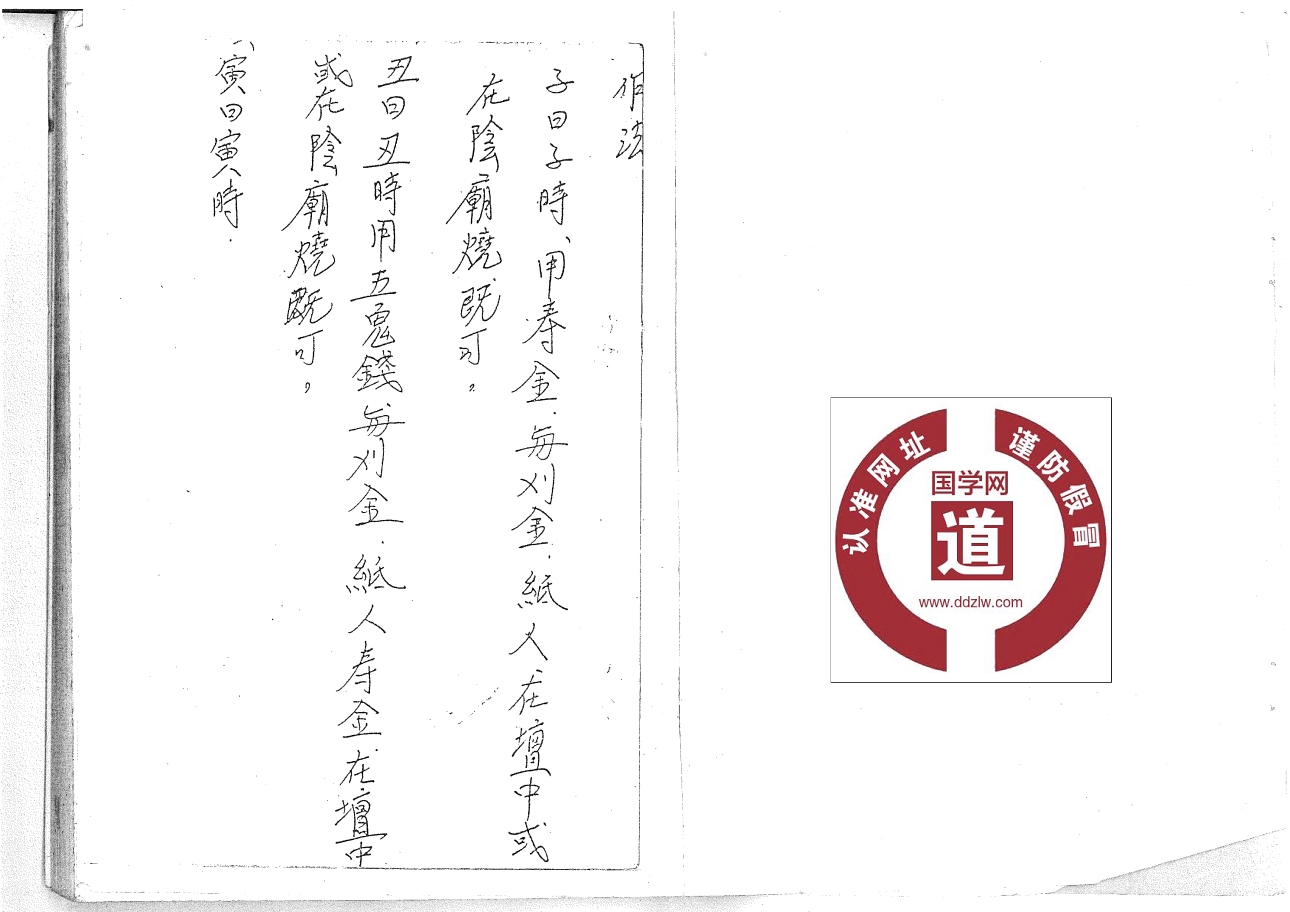 作法
子日子時、用寿金.每刈金.紙人在壇中或
在陰廟燒既可。
丑日丑時用五鬼錢每刈金.紙人寿金在壇中
或在陰廟燒既可。
寅日寅時.
认准网址 谨防假冒
国学网
道
www.ddzlw.com